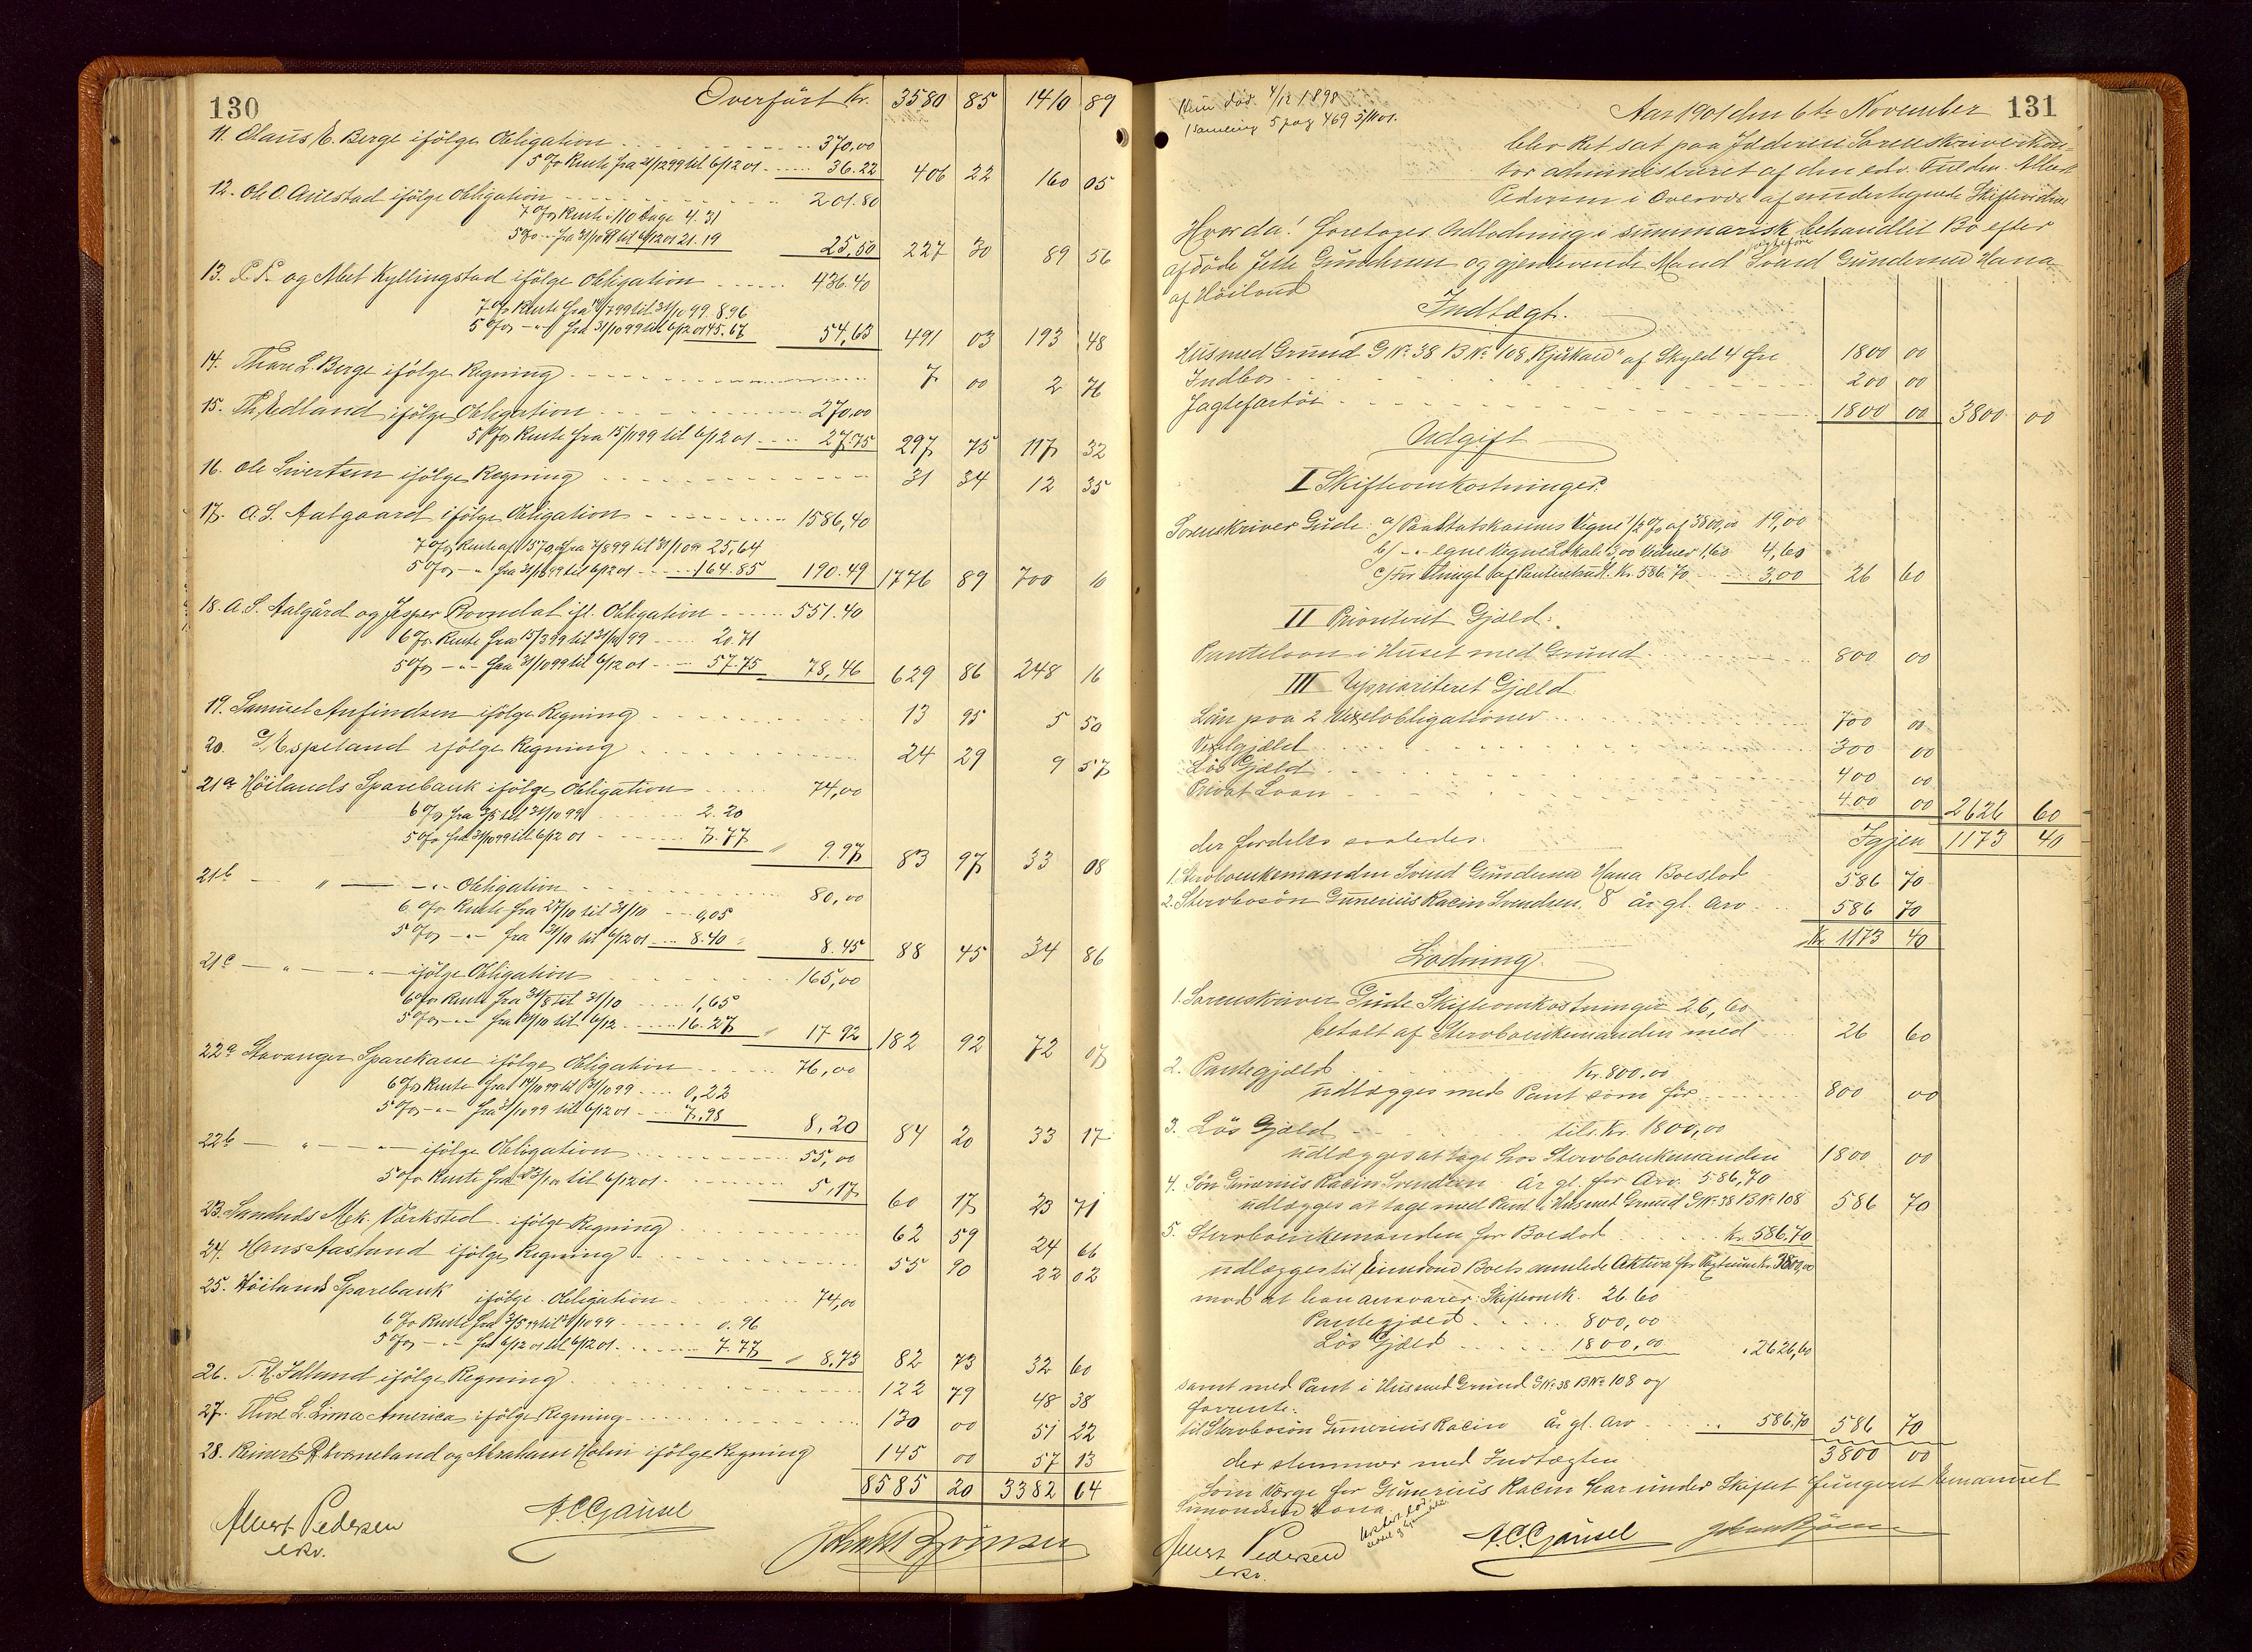 130
Overført Kr. 3580 85 1410 89
11. Olaus E. Berge ifölge Obligation 370,00
5 % Rente fra 21/12 99 til 6/12 01 36.22 406 22 160 05
12. Ole O. Auestad ifölge Obligation 201.80
7 % Rente i 110 Dage 4.31
5 % -"- fra 31/10 99 til 6/12 01 21.19 25,50 227 30 89 56
13. P. P. og Abel Kyllingstad ifölge Obligation 436.40
7 % Rente fra 14/7 99 til 31/10 99 8.96
5 % -"- fra 31/10 99 til 6/12 01 45.67 54,63 491 03 193 48
14. Thore L. Berge ifölge Regning 7 00 2 76
15. Th. Edland ifölge Obligation 270,00
5 % Rente fra 15/11 99 til 6/12 01 27.75 297 75 117 32
16. Ole Sivertsen ifölge Regning 31 34 12 35
17. A. S. Aalgaard ifölge Obligation 1586,40
7 % Rente af 1570, fra 7/8 99 til 31/10 99 25,64
5 % -"- fra 31/10 99 til 6/12 01 164.85 190.49 1776 89 700 10
18. A. S. Aalgård og Jesper Bovndal ifl. Obligation 551.40
6 % Rente fra 15/3 99 til 31/10 99 20.71
5 % -"- fra 31/10 99 til 6/12 01 57.75 78,46 629 86 248 16
19. Samuel Anfindsen ifölge Regning 13 95 5 50
20. Espeland ifölge Regning 24 29 9 57
21a Höilands Sparebank ifölge Obligation 74,00
6 % fra 3/5 til 31/10 99 2.20
5 % fra 31/10 99 til 6/12 01 7.77 9.97 83 97 33 08
21b — " — -"- Obligation 80,00
6 % Rente fra 27/10 til 31/10 0,05
5 % -"- fra 31/10 til 6/12 01 8.40 8.45 88 45 34 86
21c — " — " — ifölge Obligation 165,00
6 % Rente fra 31/8 til 31/10 1,65
5 % -"- fra 31/10 til 6/12 16.27 17 92 182 92 72 07
22a Stavanger Sparekasse ifölge Obligation 76,00
6 % Rente fra 14/10 99 til 31/10 99 0,22
5 % -"- fra 31/10 99 till 6/12 01 7,98 8,20 84 20 33 17
22b — " — " — ifölge Obligation 55,00
5 % Rente fra 23/10 til 6/12 01 5,17 60 17 23 71
23. Sandnes Mek. Værksted ifölge Regning 62 59 24 66
24. Hans Aasland ifölge Regning 55 90 22 02
25. Höilands Sparebank ifölge Obligation 74,00
6 % Rente fra 3/5 99 til 31/10 99 0.96
5 % -"- fra 6/12 01 til 6/12 01 7.77 8,73 82 73 32 60
26. T. R. Idland ifölge Regning 122 79 48 38
27. Thore L. Lima America ifölge Regning 130 00 51 22
28. Reinert R. Kverneland og Abraham Holm ifölge Regning 145 00 57 13
8585 20 3382 64
Albert Pedersen
eksv.
A. C. Gausel
131
Hun död 4/12 1898
1 Samling 5 pag 469 5/11 01.
Aar 1901 den 6te November
blev Ret sat paa Jæderens Sorenskriverkon-
tor administreret af den edv. Fuldm. Albert
Pedersen i Overvær af undertegnede Skiftevidner
Hvorda! Foretoges Udlodning i summarisk behandlet Bo efter
afdöde Jette Gundersen og gjenlevende Mand jagtefører Svend Gundersen Hana
af Höiland
Indtægt.
Hus med Grund G No 38 B No 108 "Kjökaed" af Skyld 4 Öre 1800 00
Indbo 200 00
Jagtefartöi 1800 00 3800 00
Udgift
I Skifteomkostninger:
Sorenskriver Gude: a/ Paa Statskassens Vegne 1/2 % af 3800,00 19,00
b/ -"- egne Vegne Lokale 3,00 Vidner 1,60 4,60
c/ for Thingl. af Panteretten f. Kr. 586.70 3,00 26 60
II Prioriteret Gjæld.
Pantelaan i Huset med Grund 800 00
III Uprioriteret Gjæld.
Lån paa 2 Vexelobligationer 700 00
Vexelgjæld 300 00
Lös Gjæld 400 00
Privat Laan 400 00 2626 60
Igjen 1173 40
der fordeles saaledes:
1. Stervboenkemanden Svend Gundersen Hana Boeslod 586 70
2. Stervbosön Gunerius Racin Svendsen, 8 år gl. Arv 586 70
Kr. 1173 40
Lodning.
1. Sorenskriver Gude Skifteomkostninger 26,60
betalt af Stervboenkemanden med 26 60
2. Pantegjæld Kr. 800.00
udlægges med Pant som för 800 00
3. Lös Gjæld tils. Kr. 1800,00
udlægges at tage hos Stervboenkemanden 1800 00
4. Sön Gunerius Racin Svendsen år gl. for Arv 586,70
udlægges at tage med Pant i Hus med Grund G No 38 B No 108 586 70
5. Stervboenkemanden for Boeslod Kr. 586.70
udlægges til Eiendom Boets samlede Aktiva for Kr. 3800,00
mod at han ansvarer: Skifteomk. 26.60
Pantegjæld 800,00
Lös Gjæld 1800,00 " 2626,60
samt med Pant i Hus med Grund G No 38 B No 108 og
forrente:
til Stervbosön Gunerius Racin År gl. Arv 586.70 586 70
der stemmer med Indtægten 3800 00
Som Værge for Gunerius Racin har under Skiftet fungeret Emanuel
Simonsen Hana.
Albert Pedersen
eksv.
A. C. Gausel